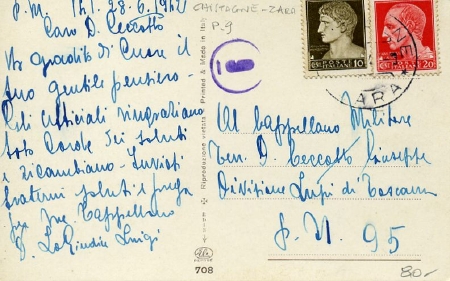 P.M. 141. 28-6-1942
Caro D. Ceccotto
Ho gradito di Cuore il
Suo gentile pensiero-
Gli Ufficiali ringraziano
loro Corde dei saluti
e ricambiano-
fraterni saluti e prega
per me Cappellano
D. Lo Giudice Luigi
GHISTAGNE-ZARA
P.9
Riproduzione vietata - Printed & Made in Italy
708
POSTE
ITALIANE 10
POSTE
ITALIANE 20
ZARA
Al Cappellano Militare
Ten. D. Ceccotto Giuseppe
Divisione Lupi di Toscana
P. M. 95
80.-